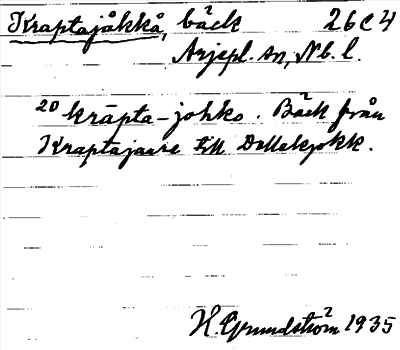 Kraptajåkkå, bäck 26 C 4
Arjepl. sn, Nb. l.
20 krāpta-johko. Bäck från
Kraptajaure till Dellekjokk.
H. Grundström 1935